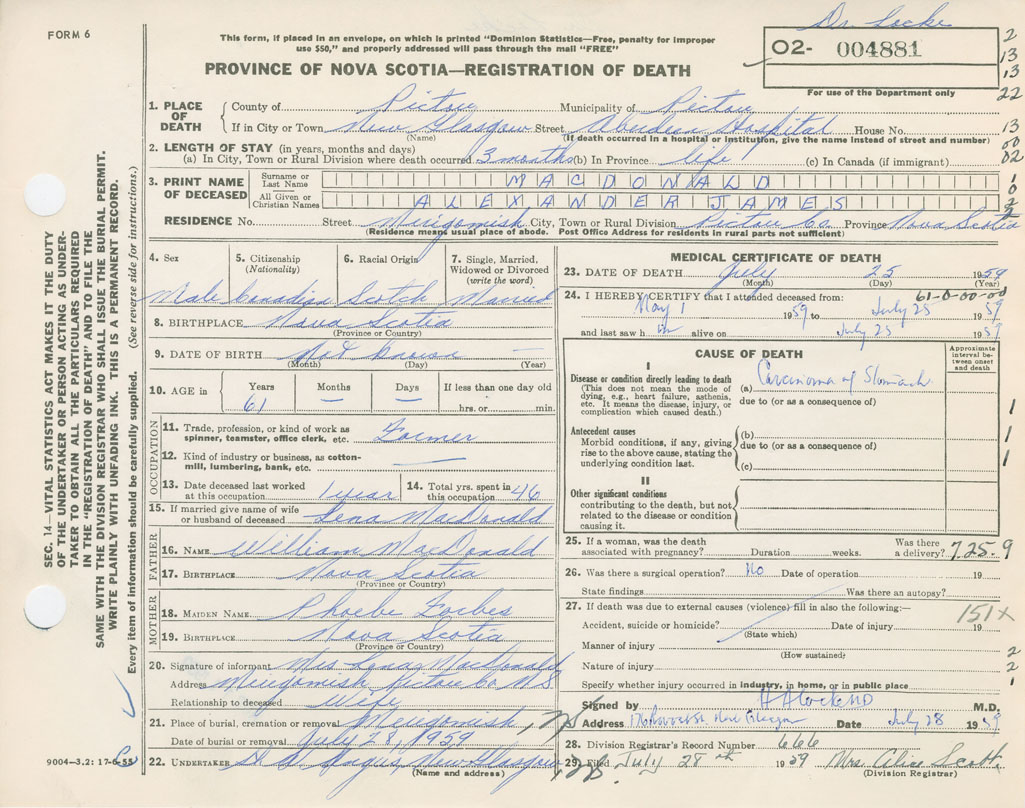 Dr. Locke
FORM 6
This form, if placed in an envelope, on which is printed "Dominion Statistics—Free, penalty for improper
use $50," and properly addressed will pass through the mail "FREE"
O2- 004881
For use of the Department only
2
13
13
22
PROVINCE OF NOVA SCOTIA—REGISTRATION OF DEATH
SEC. 14—VITAL STATISTICS ACT MAKES IT THE DUTY
OF THE UNDERTAKER OR PERSON ACTING AS UNDER-
TAKER TO OBTAIN ALL THE PARTICULARS REQUIRED
IN THE "REGISTRATION OF DEATH" AND TO FILE THE
SAME WITH THE DIVISION REGISTRAR WHO SHALL ISSUE THE BURIAL PERMIT.
WRITE PLAINLY WITH UNFADING INK. THIS IS A PERMANENT RECORD.
Every item of information should be carefully supplied. (See reverse side for instructions.)
1. PLACE OF DEATH County of Pictou Municipality of Pictou
If in City or Town New Glasgow Street Aberdeen Hospital House No. 13
(Name) (If death occurred in a hospital or institution, give the name instead of street and number) 00
2. LENGTH OF STAY (in years, months and days)
(a) In City, Town or Rural Division where death occurred 3 months (b) In Province life (c) In Canada (if immigrant) 02
3. PRINT NAME OF DECEASED Surname or Last Name MACDONALD
All Given or Christian Names ALEXANDER JAMES
RESIDENCE No. Street Merigomish City, Town or Rural Division Pictou Co. Province Nova Scotia
(Residence means usual place of abode. Post Office Address for residents in rural parts not sufficient)
4. Sex 5. Citizenship (Nationality) 6. Racial Origin 7. Single, Married, Widowed or Divorced (write the word)
Male Canadian Scotch Married
8. BIRTHPLACE Nova Scotia
(Province or Country)
9. DATE OF BIRTH Not known —
(Month) (Day) (Year)
10. AGE in Years Months Days If less than one day old
61 — — hrs. or min.
OCCUPATION
11. Trade, profession, or kind of work as
spinner, teamster, office clerk, etc. Farmer
12. Kind of industry or business, as cotton-
mill, lumbering, bank, etc. —
13. Date deceased last worked at this occupation 1 year 14. Total yrs. spent in this occupation 46
15. If married give name of wife
or husband of deceased Lena MacDonald
FATHER
16. NAME William MacDonald
17. BIRTHPLACE Nova Scotia
(Province or Country)
MOTHER
18. MAIDEN NAME Phoebe Forbes
19. BIRTHPLACE Nova Scotia
(Province or Country)
20. Signature of informant Mrs Lena MacDonald
Address Merigomish Pictou Co N.S
Relationship to deceased Wife
21. Place of burial, cremation or removal Merigomish, N.S
Date of burial or removal July 28, 1959
22. UNDERTAKER New Glasgow N.S.
(Name and address)
9004—3.2: 17-6-55
MEDICAL CERTIFICATE OF DEATH
23. DATE OF DEATH July 25 1959
(Month) (Day) (Year)
61-0-00-00
24. I HEREBY CERTIFY that I attended deceased from:
May 1 1959 to July 25 1959
and last saw him alive on July 25 1959
CAUSE OF DEATH
Approximate interval between onset and death
I
Disease or condition directly leading to death (a) Carcinoma of Stomach
(This does not mean the mode of
dying, e.g., heart failure, asthenia,
etc. It means the disease, injury, or
complication which caused death.)
due to (or as a consequence of)
Antecedent causes
Morbid conditions, if any, giving
rise to the above cause, stating the
underlying condition last.
(b)
due to (or as a consequence of)
(c)
1
1
1
II
Other significant conditions
contributing to the death, but not
related to the disease or condition
causing it.
25. If a woman, was the death Was there
associated with pregnancy? Duration weeks. a delivery? 725.9
26. Was there a surgical operation? No Date of operation 19
State findings Was there an autopsy?
27. If death was due to external causes (violence) fill in also the following:— 151x
Accident, suicide or homicide? Date of injury 19
(State which)
Manner of injury 2
(How sustained)
Nature of injury 2
Specify whether injury occurred in industry, in home, or in public place 1
Signed by H A Locke MD M.D.
Address New Glasgow Date July 28 1959
28. Division Registrar's Record Number 666
29. Filed July 28th 1959 Mrs. Alice Scott
(Division Registrar)